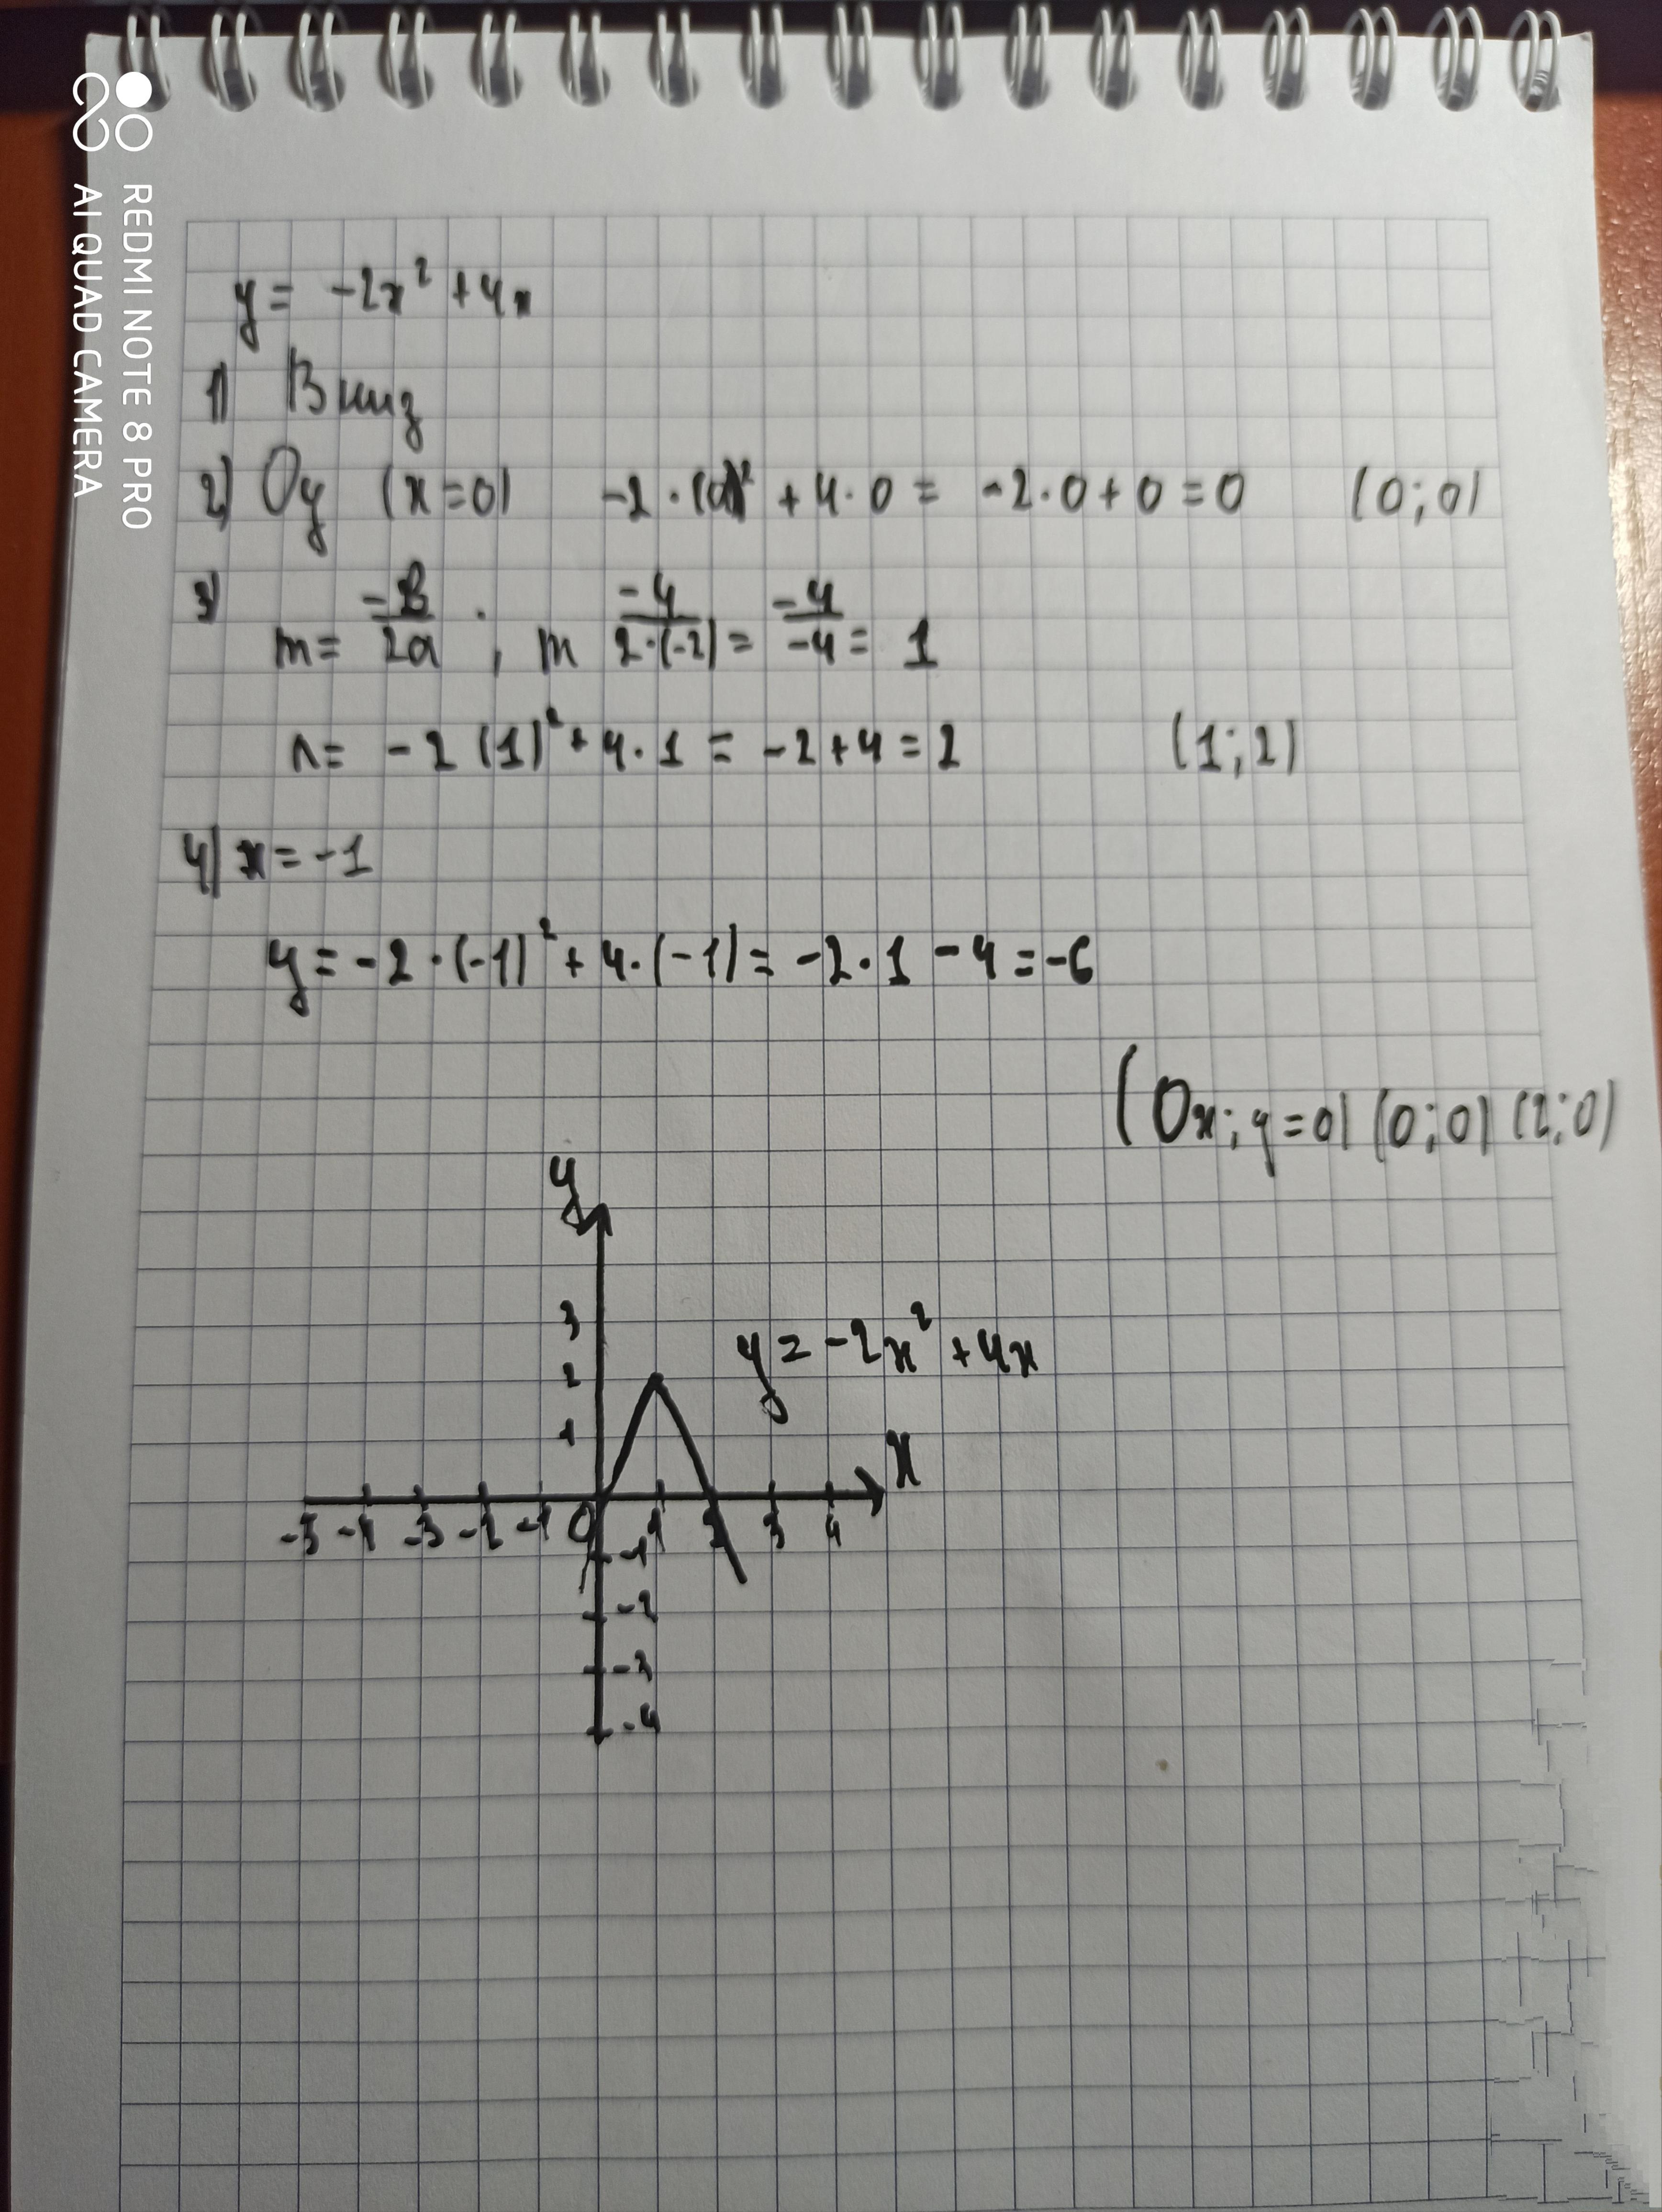 y = -2x² + 4x
1) Вниз
2) Oy (x=0) -2·(0)² + 4·0 = -2·0+0=0 (0;0)
3) m = -B/2a ; m -4/2·(-2) = -4/-4 = 1
n = -2(1)² + 4·1 = -2+4=2 (1;2)
4) x=-1
y = -2·(-1)² + 4·(-1) = -2·1 -4 = -6
(Ox; y=0) (0;0) (2;0)
y
3
y = -2x² + 4x
2
1
x
-5 -4 -3 -2 -1 0 1 2 3 4
-1
-2
-3
-4
REDMI NOTE 8 PRO
AI QUAD CAMERA